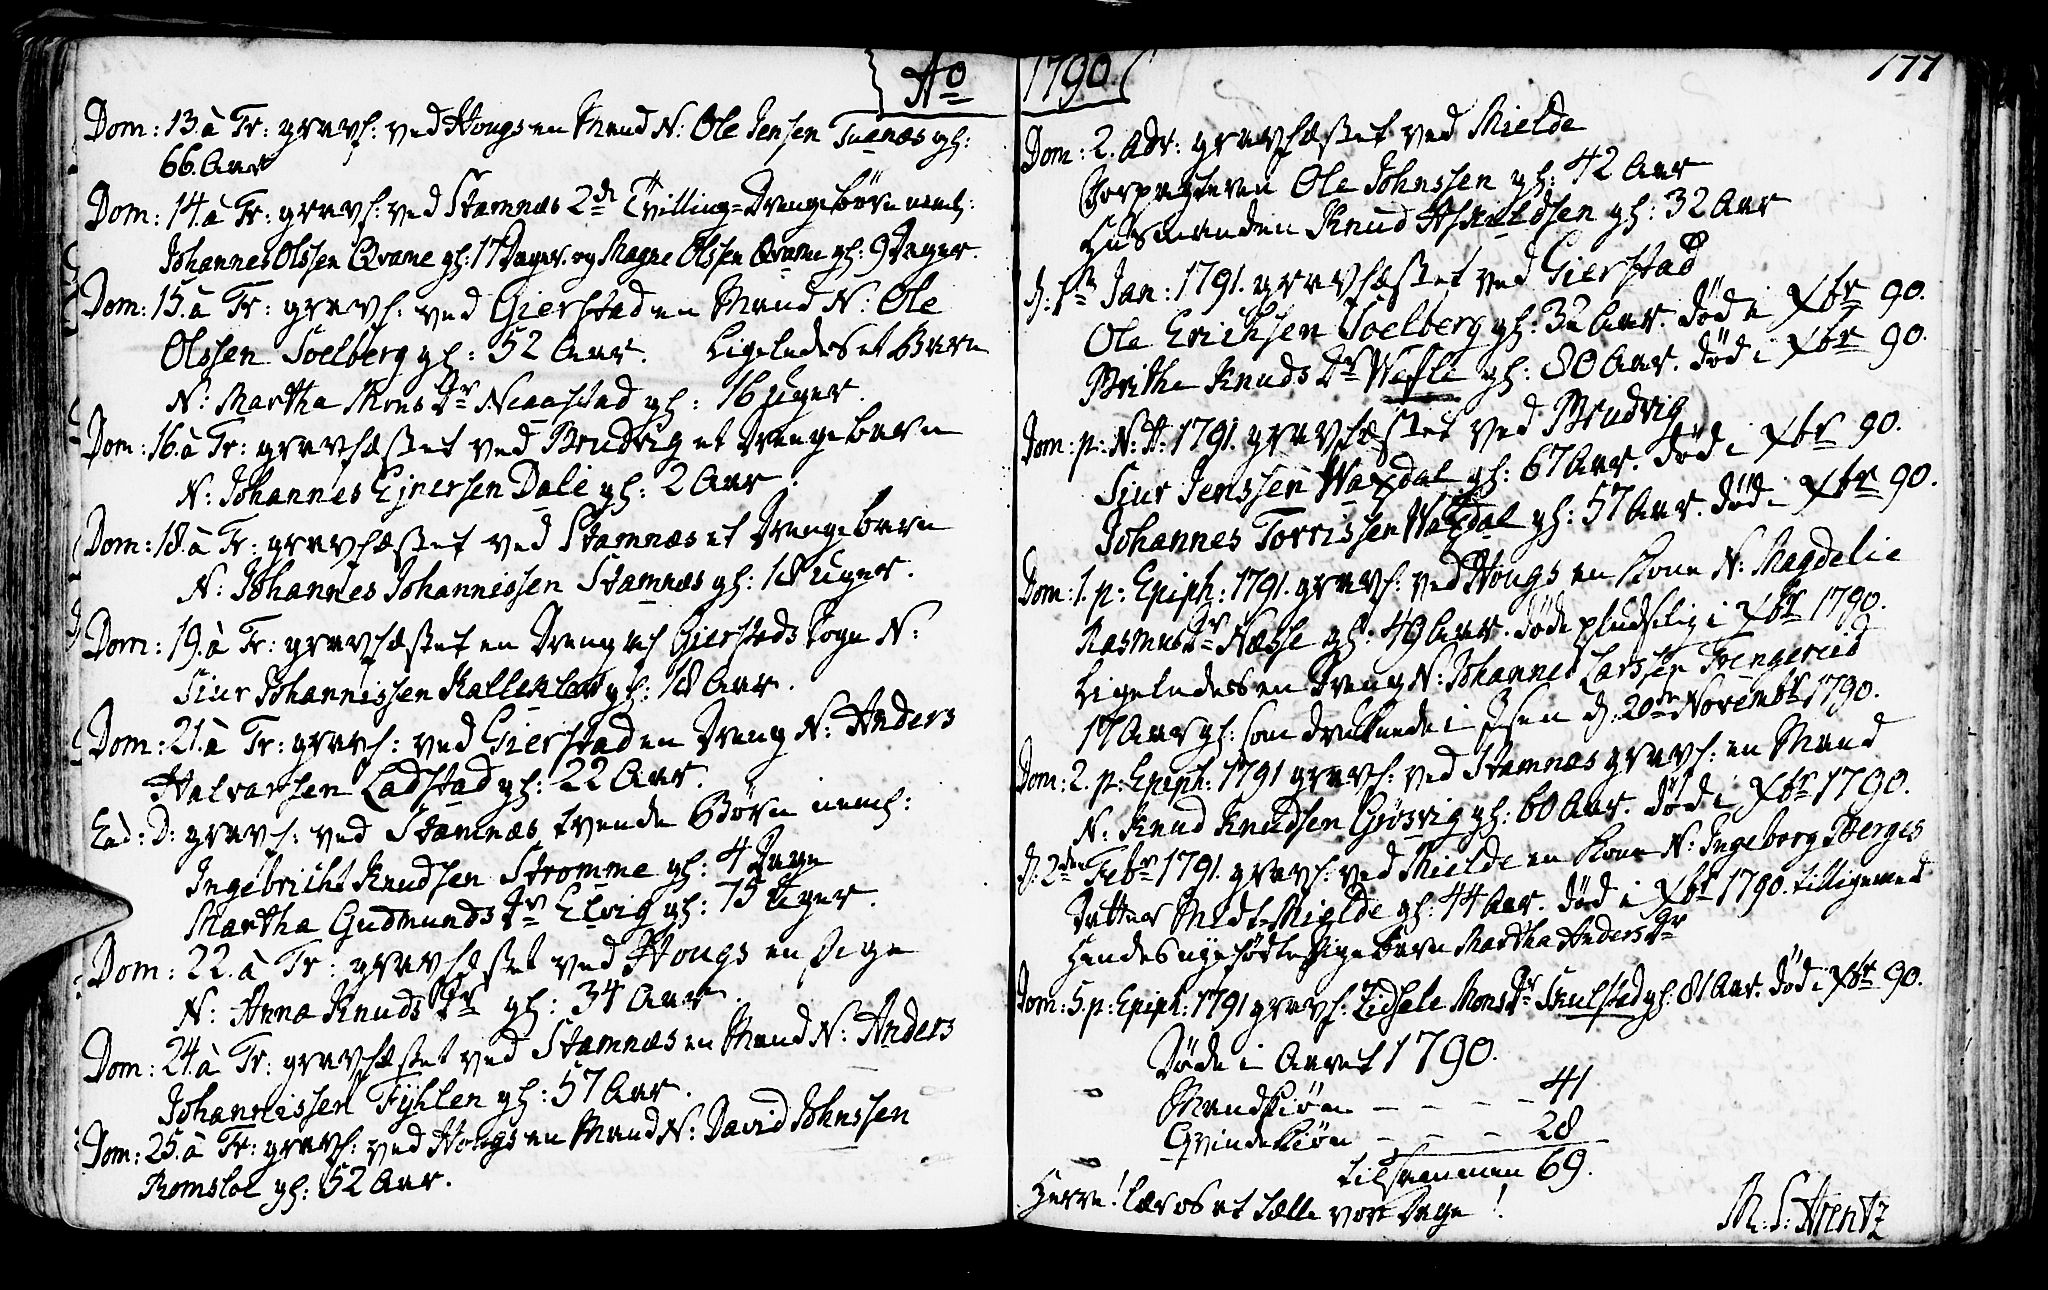 Ao
Dom: 13. à Tr: gravf: ved Hougs en Mand N: Ole Jensen Tuenæs gl:
66. Aar
Dom: 14. à Tr: gravf: ved Stamnæs 2de Tvilling-Drengebørn neml:
Johannes Olssen Qvame gl: 17 Dager. og Magne Olssen Qvame gl: 9 Dager.
Dom: 15. à Tr: gravf: ved Gierstad en Mand N: Ole
Olssen Soelberg gl: 52 Aar. Ligeledes et Barn
N: Martha Mons Dr Neaastad gl: 16 Uger.
Dom: 16. à Tr: gravfæstet ved Brudvig et Drengebarn
N: Johannes Ejnersen Dale gl: 2 Aar.
Dom: 18. à Tr: gravfæstet ved Stamnæs et Drengebarn
N: Johannes Johannissen Stamnæs gl: 18 Uger.
Dom: 19. à Tr: gravfæstet en Dreng af Gierstads Sogn N:
Siur Johannissen Kalleklev gl: 18 Aar.
Dom: 21. à Tr: gravf: ved Gierstad en Dreng N: Anders
Halvorsen Ladstad gl: 22 Aar.
Ead: D: gravf: ved Stamnæs tvende Børn neml:
Ingebricht Knudsen Stromme gl: 4 Dage
Martha Gudmunds Dr Elvig gl: 15 Uger.
Dom: 22. à Tr: gravfæstet ved Hougs en Pige
N: Anna Knuds Dr gl: 34 Aar.
Dom: 24. à Tr: gravfæstet ved Stamnæs en Mand N: Anders
Johannissen Fyhlen gl: 57 Aar.
Dom: 25. à Tr: gravf: ved Hougs en Mand N: David Johnssen
Romsloe gl: 52 Aar.
1790. 177
Dom: 2. Adv: gravfæstet ved Mielde
Forpagteren Ole Johnssen gl: 42 Aar
Husmanden Knud Askieldsen gl: 32 Aar
d: 1ste Jan: 1791. gravfæstet ved Gierstad
Ole Erichsen Soelberg gl: 32 Aar. død i Xbr 90.
Brithe Knuds Dr Wefle gl: 80 Aar. død i Xbr 90.
Dom: p: N: A: 1791. gravfæstet ved Brudvig
Siur Jenssen Waxdal gl: 67 Aar. død i Xbr 90.
Johannes Torrissen Waxdal gl: 57 Aar. død i Xbr 90.
Dom: 1. p: Epiph: 1791. gravf: ved Hougs en Kone N: Magdelie
Rasmus Dr Næsse gl: 49 Aar. døde pludselig i Xbr 1790.
Ligeledes en Dreng N: Johannes Larssen Tvengereid
17 Aar gl: som druknede i Isen d: 20de Novembr 1790.
Dom: 2. p: Epiph: 1791 gravf: ved Stamnæs gravf: en Mand
N: Knud Knudsen Grøsvig gl: 60 Aar. død i Xbr 1790.
d: 2den Febr 1791. gravf: ved Mielde en Kone N: Ingeborg Berges
Datter Midt-Mielde gl: 44 Aar. død i Xbr 1790. tilligemed
Hendes nyefødte Pigebarn Martha Anders Dr
Dom: 5. p: Epiph: 1791 gravf: Zidsele Mons Dr Skulstad gl: 81 Aar. død i Xbr 90.
Døde i Aaret 1790.
Mandkiøn - - - - 41
Qvindekiøn - - - 28
tilsammen 69.
Herre! lær os at tælle vore Dage!
M: S: Arentz